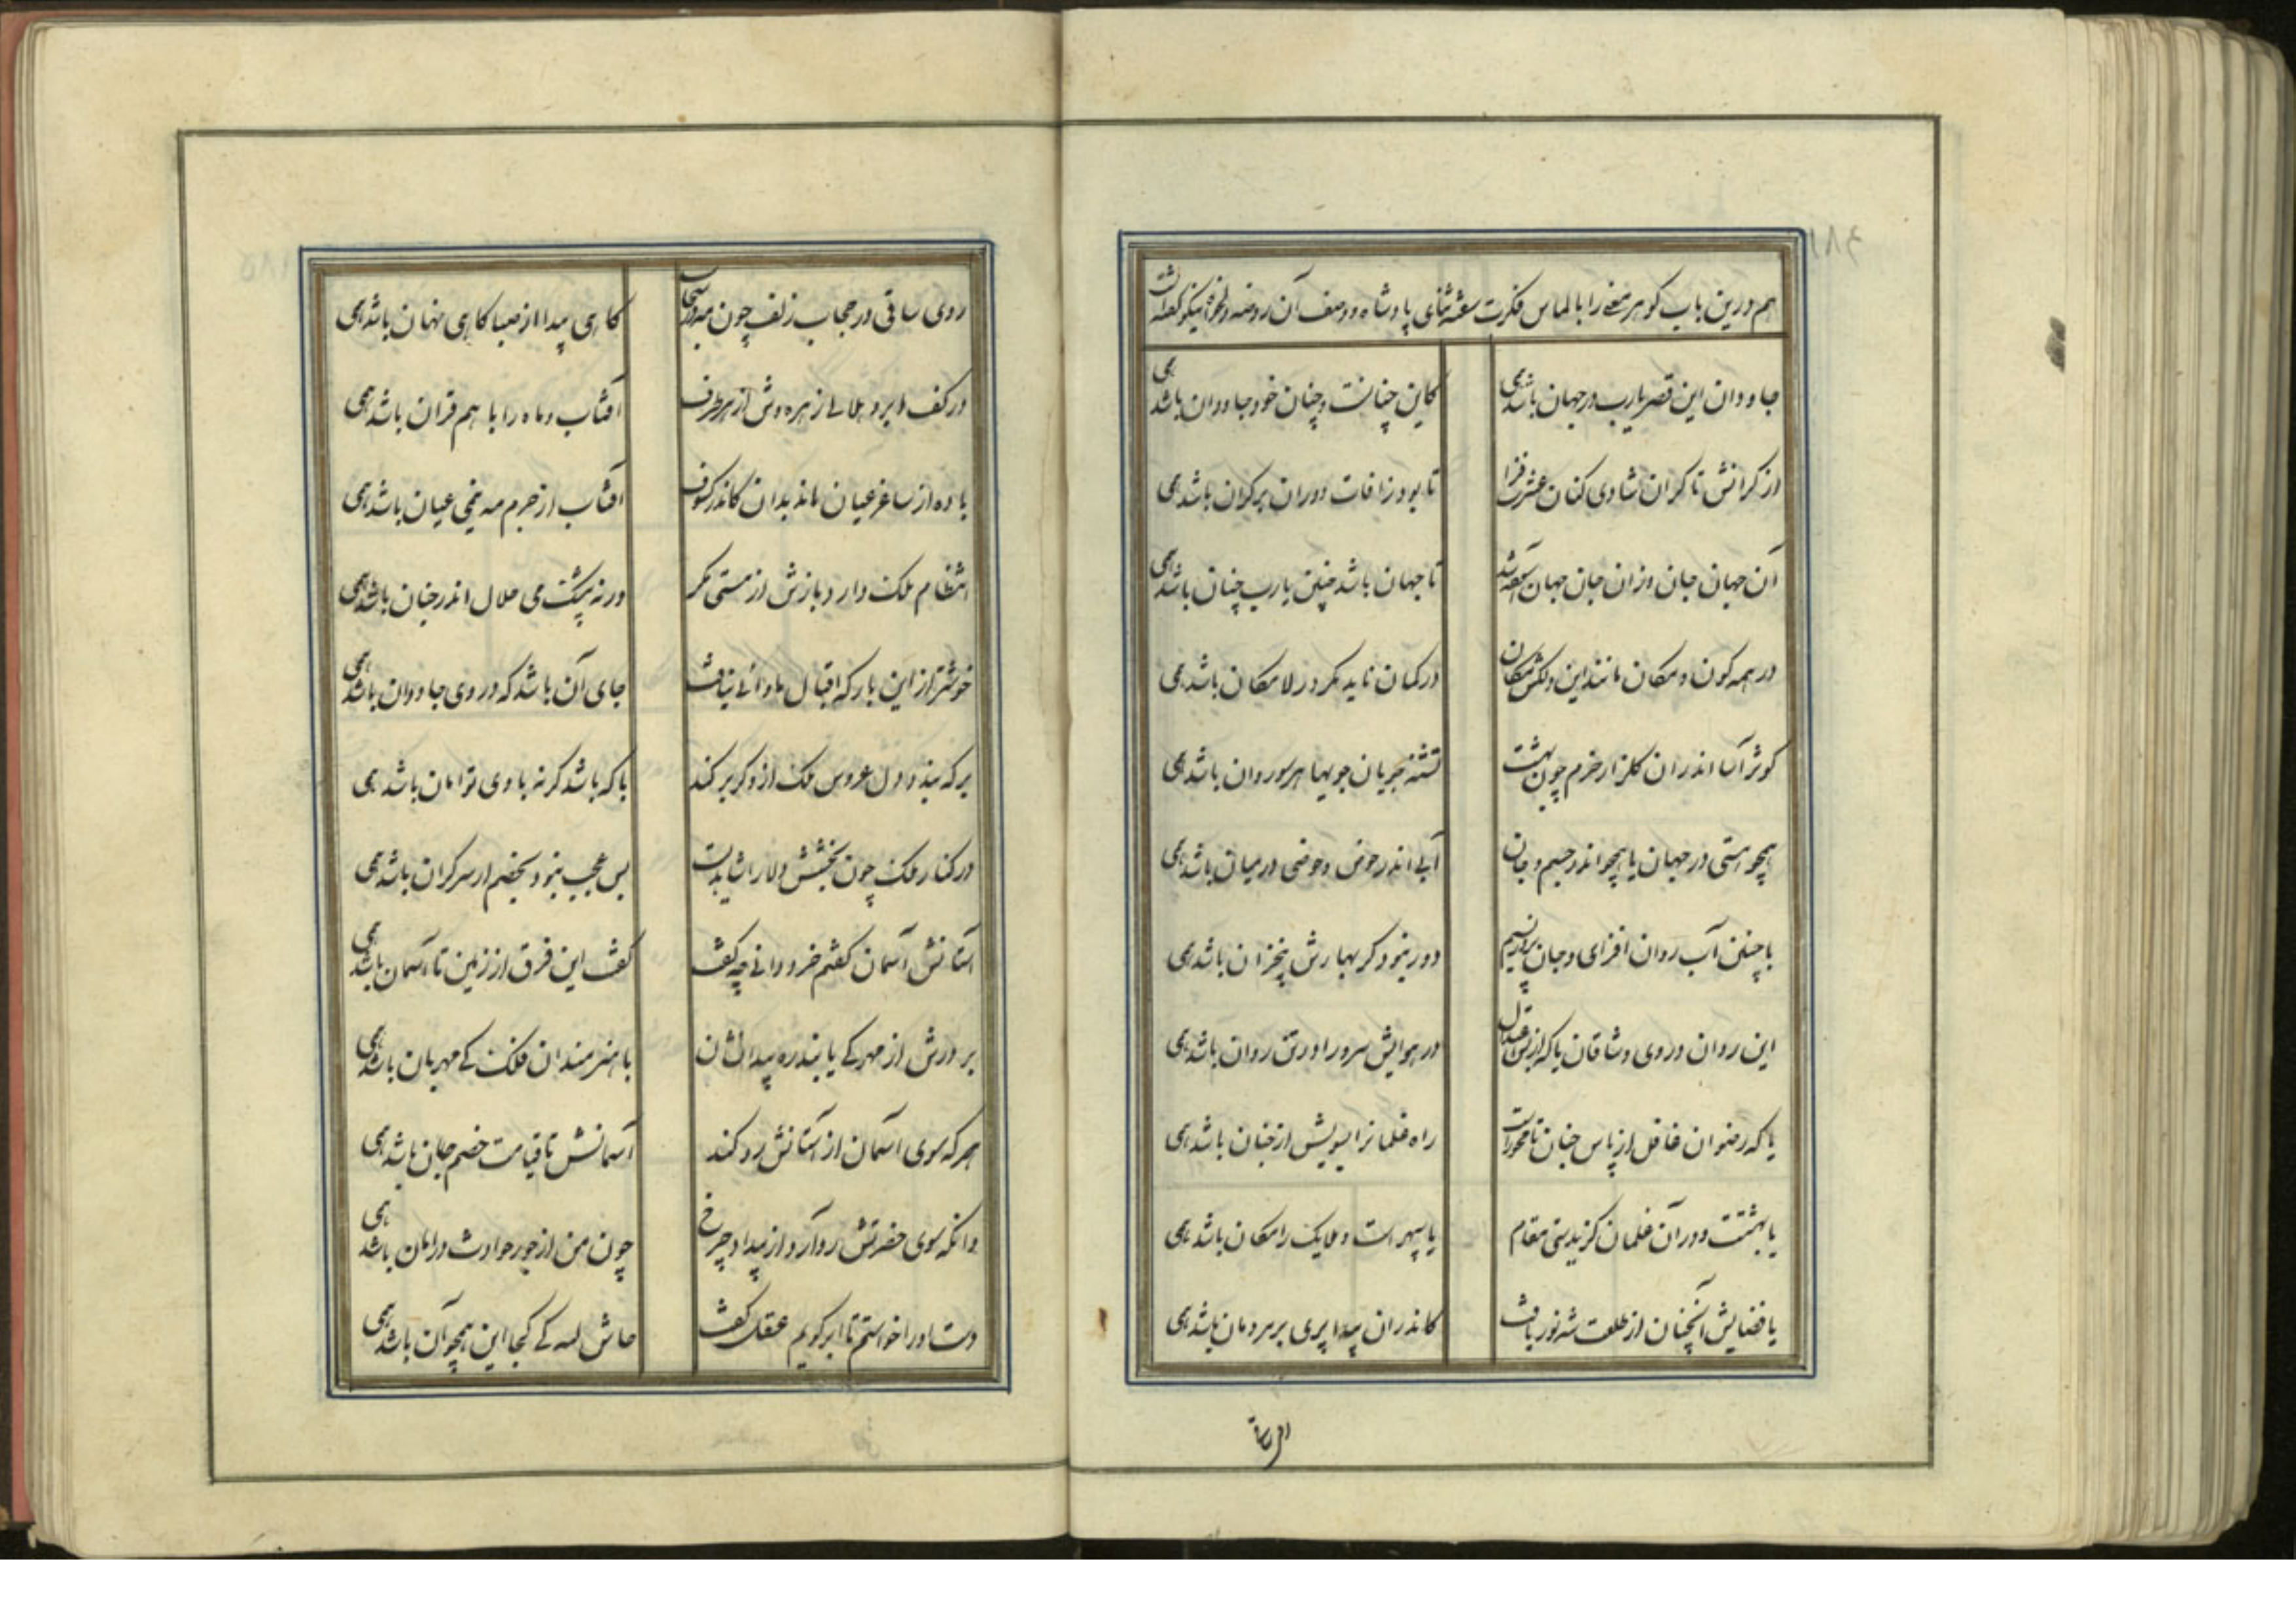 هم درین باب گوهر معنی را بالماس فکرت سفته ثنای پادشاه و وصف آن روضه دلخواه نیکو گفته است
جاودان این قصر یارب در جهان باشد همی کاین چنانست و چنان خود جاودان باشد همی
از کرانش تا کران شادی کنان عشرت فزا تا بود ز افات دوران بر کران باشد همی
آن جهان جان و زان جان جهان تا جهان باشد چنین یارب چنان باشد همی
در همه کون و مکان مانند این دلکش مکان در گمان ناید مگر در لامکان باشد همی
کوثر آسا اندران گلزار خرم چون بهشت تشنه جریان جویها هر سو روان باشد همی
همچو هستی در جهان یا همچو اندر جسم و جان آبی اندر حوض و حوضی در میان باشد همی
با چنین آب روان افزای و جان پرور نسیم دور نبود گر بهارش بیخزان باشد همی
این روان در وی وشاقان یا که از بس اعتدال در هوایش سرو را در تن روان باشد همی
یا که رضوان غافل از پاس جنان تا محو اوست راه غلمانرا بسویش از جنان باشد همی
یا بهشتت و در آن غلمان گزیدستی مقام یا سپهر است و ملایک را مکان باشد همی
یا فضایش آنچنان از طلعت شه نور یافت کاندران پیدا پری بر مردمان باشد همی
روی ساقی
روی ساقی در حجاب زلف چون مه در سحاب گاهی پیدا از صبا گاهی نهان باشد همی
در کف ابرو هلالی زهره وش از هر طرف آفتاب و ماه را با هم قران باشد همی
باده از ساغر عیان ماند بدان کاندر کسوف آفتاب از جرم مه نیمی عیان باشد همی
انتظام ملک دارد بازش از مستی مگر ورنه بیشک می حلال اندر جنان باشد همی
خوشتر از این بارگه اقبال ماوائی نیافت جای آن باشد که در وی جاودان باشد همی
بر که بندد دل عروس ملک ازو گر بر کند با که باشد گر نه با وی توامان باشد همی
در کنار ملک چون بخشش دلارا شاهدیست بس عجب نبود بخصم ار سرگران باشد همی
آستانش آسمان گفتم خرد دانی چه گفت گفت این فرق از زمین تا آسمان باشد همی
بر درش از مهر کی یابند ره با هنرمندان فلک کی مهربان باشد همی
هر که سوی آسمان از آستانش رو کند آسمانش تا قیامت خصم جان باشد همی
وانکه سوی حضرتش رو آرد از بیداد چرخ چون من از جور حوادث در امان باشد همی
دست او را خواستم تا ابر گویم عقل گفت حاش لله کی کجا این همچو آن باشد همی